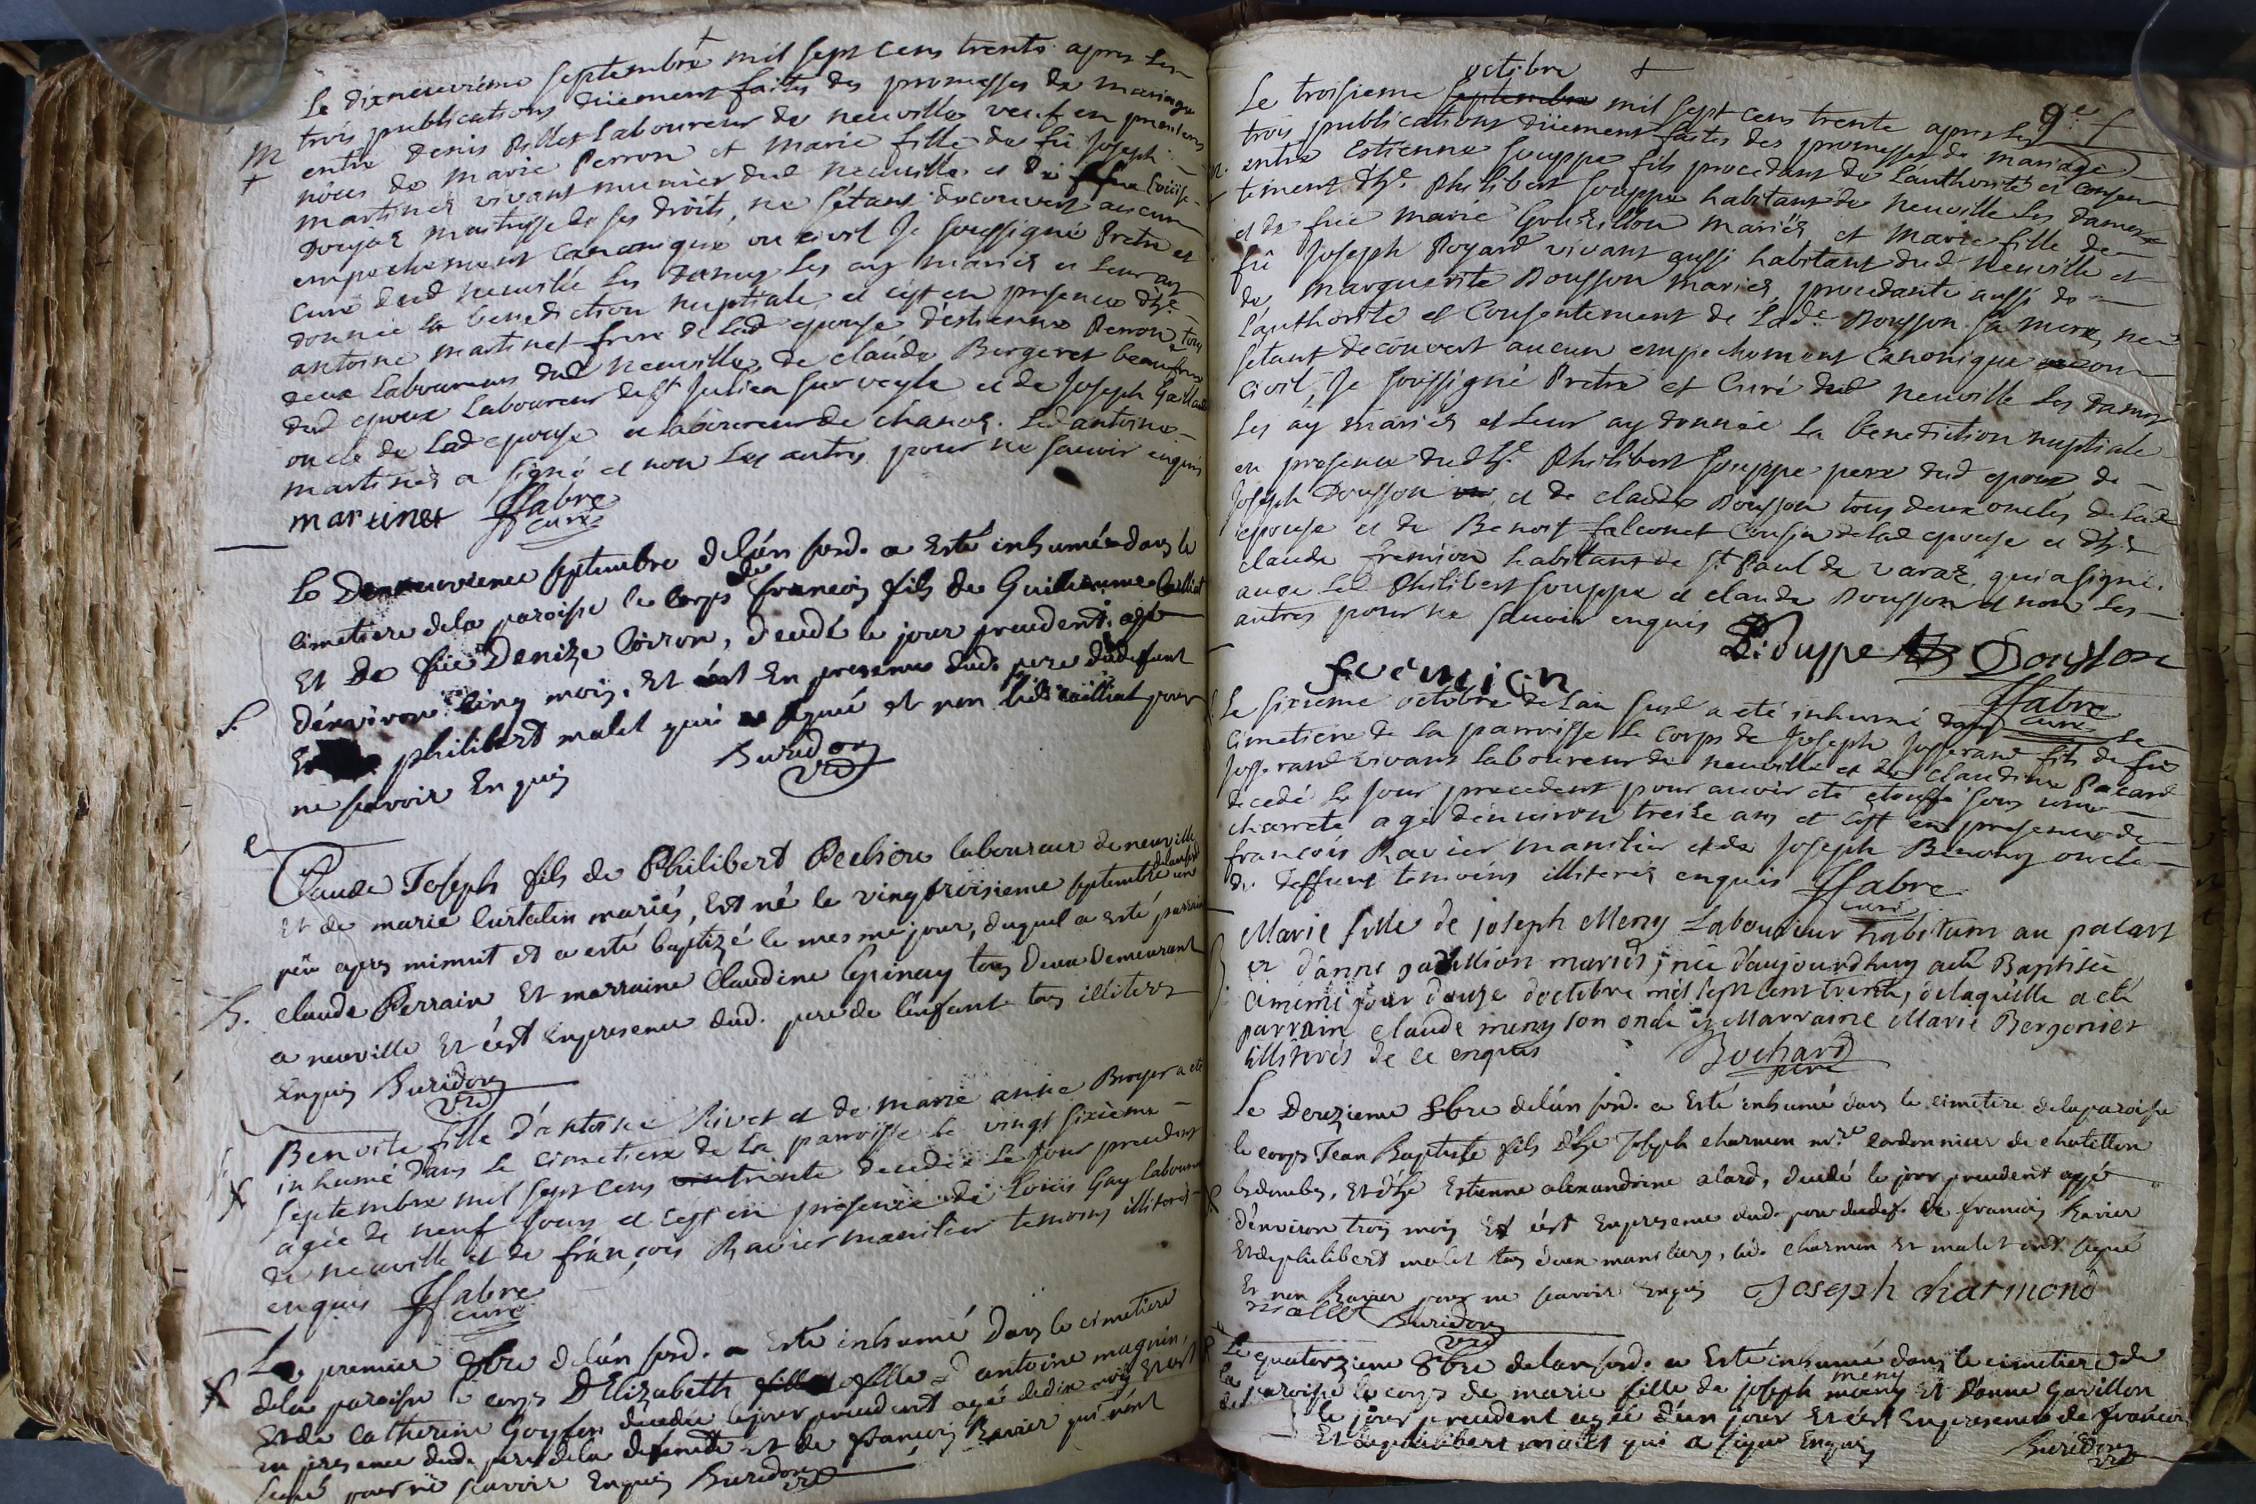 Le dixneuvième septembre mil sept cens trente apres les
trois publications düement faittes des promesses de mariage
entre denis Pillet Laboureur de neuville veuf en premieres
nôces de marie Perron et marie fille de fû Joseph
martinet vivant munier dud neuville et de Louise
maitresse de ses droits, ne s'étant découvert aucun
empechement canonique ou civil Je soussigné Pretre et
Curé dud neuville les dames les ay mariés et leur ay
donnée la benediction nuptiale et c'est en presence d'h.e
antoine martinet frere de lad epouse d'estienne Perron tous
deux Laboureurs dud neuville, de claude Bergeret beaufrere
dud epoux Laboureur de st Julien sur veyle et de Joseph
oncle de Lad epouse et laboureur de chanos. Led antoine
martinet a signé et non les autres pour ne savoir enquis
martinet ffabre
curé
M
Le Dixneuvieme septembre de l'an susd. a Esté inhumé dans le
Cimetiere de la paroisse le Corps de francois fils de Guillaume
Et De füe Denize Coiron, decedé le jour precedent agé
d'environ Cinq mois, Et c'est En presence dud. pere dudefunt
Et philibert malet qui a signé et non led. pour
ne scavoir Enquis Buridon
vic
S.
Claude Joseph fils de Philibert Pechou laboureur de neuville
Et de marie Curtalin mariés, Est né le vingtroisieme septembre de l'an susd
peu apres minuit et a esté baptizé le mesme jour, duquel a esté parrain
claude Perrain Et marraine Claudine Epinay tous Deux Demeurant
a neuville Et c'est En presence dud. pere de l'enfant tous illiteres
Enquis Buridon
vic
Benoite fille d'antoine Rivet et de marie anne Broyer a eté
inhumé dans le cimetiere de la parroisse le vingt sixième
septembre mil sept cens trente decedée le jour precedent
agée de neuf jours et c'est en presence de Loüis Gay laboureur
de neuville et de françois Ravier manilier temoins illiterés
enquis ffabre
curé
Le premier 8bre de l'an susd. a Esté inhumé Dans le cimetiere
de la paroisse le corps D'Elizabeth fille d'antoine magnin,
Et de Catherine Goyfon decedée le jour precedent agé de dix mois Et c'est
en presence dud. pere de la defunte et de francois Ravier qui n'ont
signé pour ne scavoir Enquis Buridon
vic
9e
octobre
Le troisieme septembre mil sept cens trente apres les
trois publications düement faites des promesses de mariage
entre Estienne Souppe fils procedant de l'authorité et consen
tement d'h.e Philibert Souppe habitant de neuville les dames
et de füe marie Gourillon mariés et marie fille de
fû Joseph Poyard vivant aussi habitant dud neuville et
de marguerite Dousson mariés, procedante aussi de
l'authorité et Consentement de Lad.e Dousson sa mere, ne
s'étant decouvert aucun empechement Canonique ou
civil, Je soussigné Pretre et Curé dud neuville les dames
Les aÿ mariés et Leur ay donnée la benediction nuptiale
en presence dud h.e Philibert Souppe pere dud epoux de
Joseph Dousson et de claude Dousson tous deux oncles de lad
epouse et de Benoit falconet Cousin de lad epouse et d'h.e
claude fremion habitant de st Paul de varax qui a signé
avec led Philibert Souppe et claude Dousson et non les
autres pour ne savoir enquis P. Souppe Dousson
fremion ffabre
curé
Le sixieme octobre de l'an susd a eté inhumé dans le
Cimetiere de la parroisse le corps de Joseph Josserand fils de fû
Josserand vivant laboureur de neuville et de Claudine Pacard
decedé le jour precedent pour avoir eté etouffé sous une
charrete agé d'environ treise ans et c'est en presence de
francois Ravier manilier et de Joseph oncle
du deffunt temoins illiterés enquis ffabre
curé
Marie fille de joseph Meny Laboureur habitant au
et d'anne gavillion mariés, née d'aujourdhuy a eté Baptisée
ce meme jour douze d'octobre mil sept cent trente, de laquelle a eté
parrain claude meny son oncle et Marraine Marie Bergonier
illiterés de ce enquis Bochard
Le Douzieme 8bre de l'an susd. a Esté inhumé dans le cimetiere de la paroisse
le corps Jean Baptiste fils d'h.e Joseph charmon m.re cordonnier de chatillon
lesdombes, Et d'h.e Estienne alexandrine alard, decedé le jour precedent agé
d'environ trois mois Et c'est En presence dud. pere dudef. de francois Ravier
Et de philibert malet tous deux maniliers, led. charmon Et malet ont signé
Et non Ravier pour ne scavoir Enquis Joseph charmond
mallet Buridon
vic
Le quatorzieme 8bre de l'an susd. a Esté inhumé dans le cimetiere de
la paroisse le corps de marie fille de joseph meny Et d'anne Gavillon
le jour precedent agée d'un jour Et c'est En presence de francois
Et de philibert malet qui a signé Enquis Buridon
vic